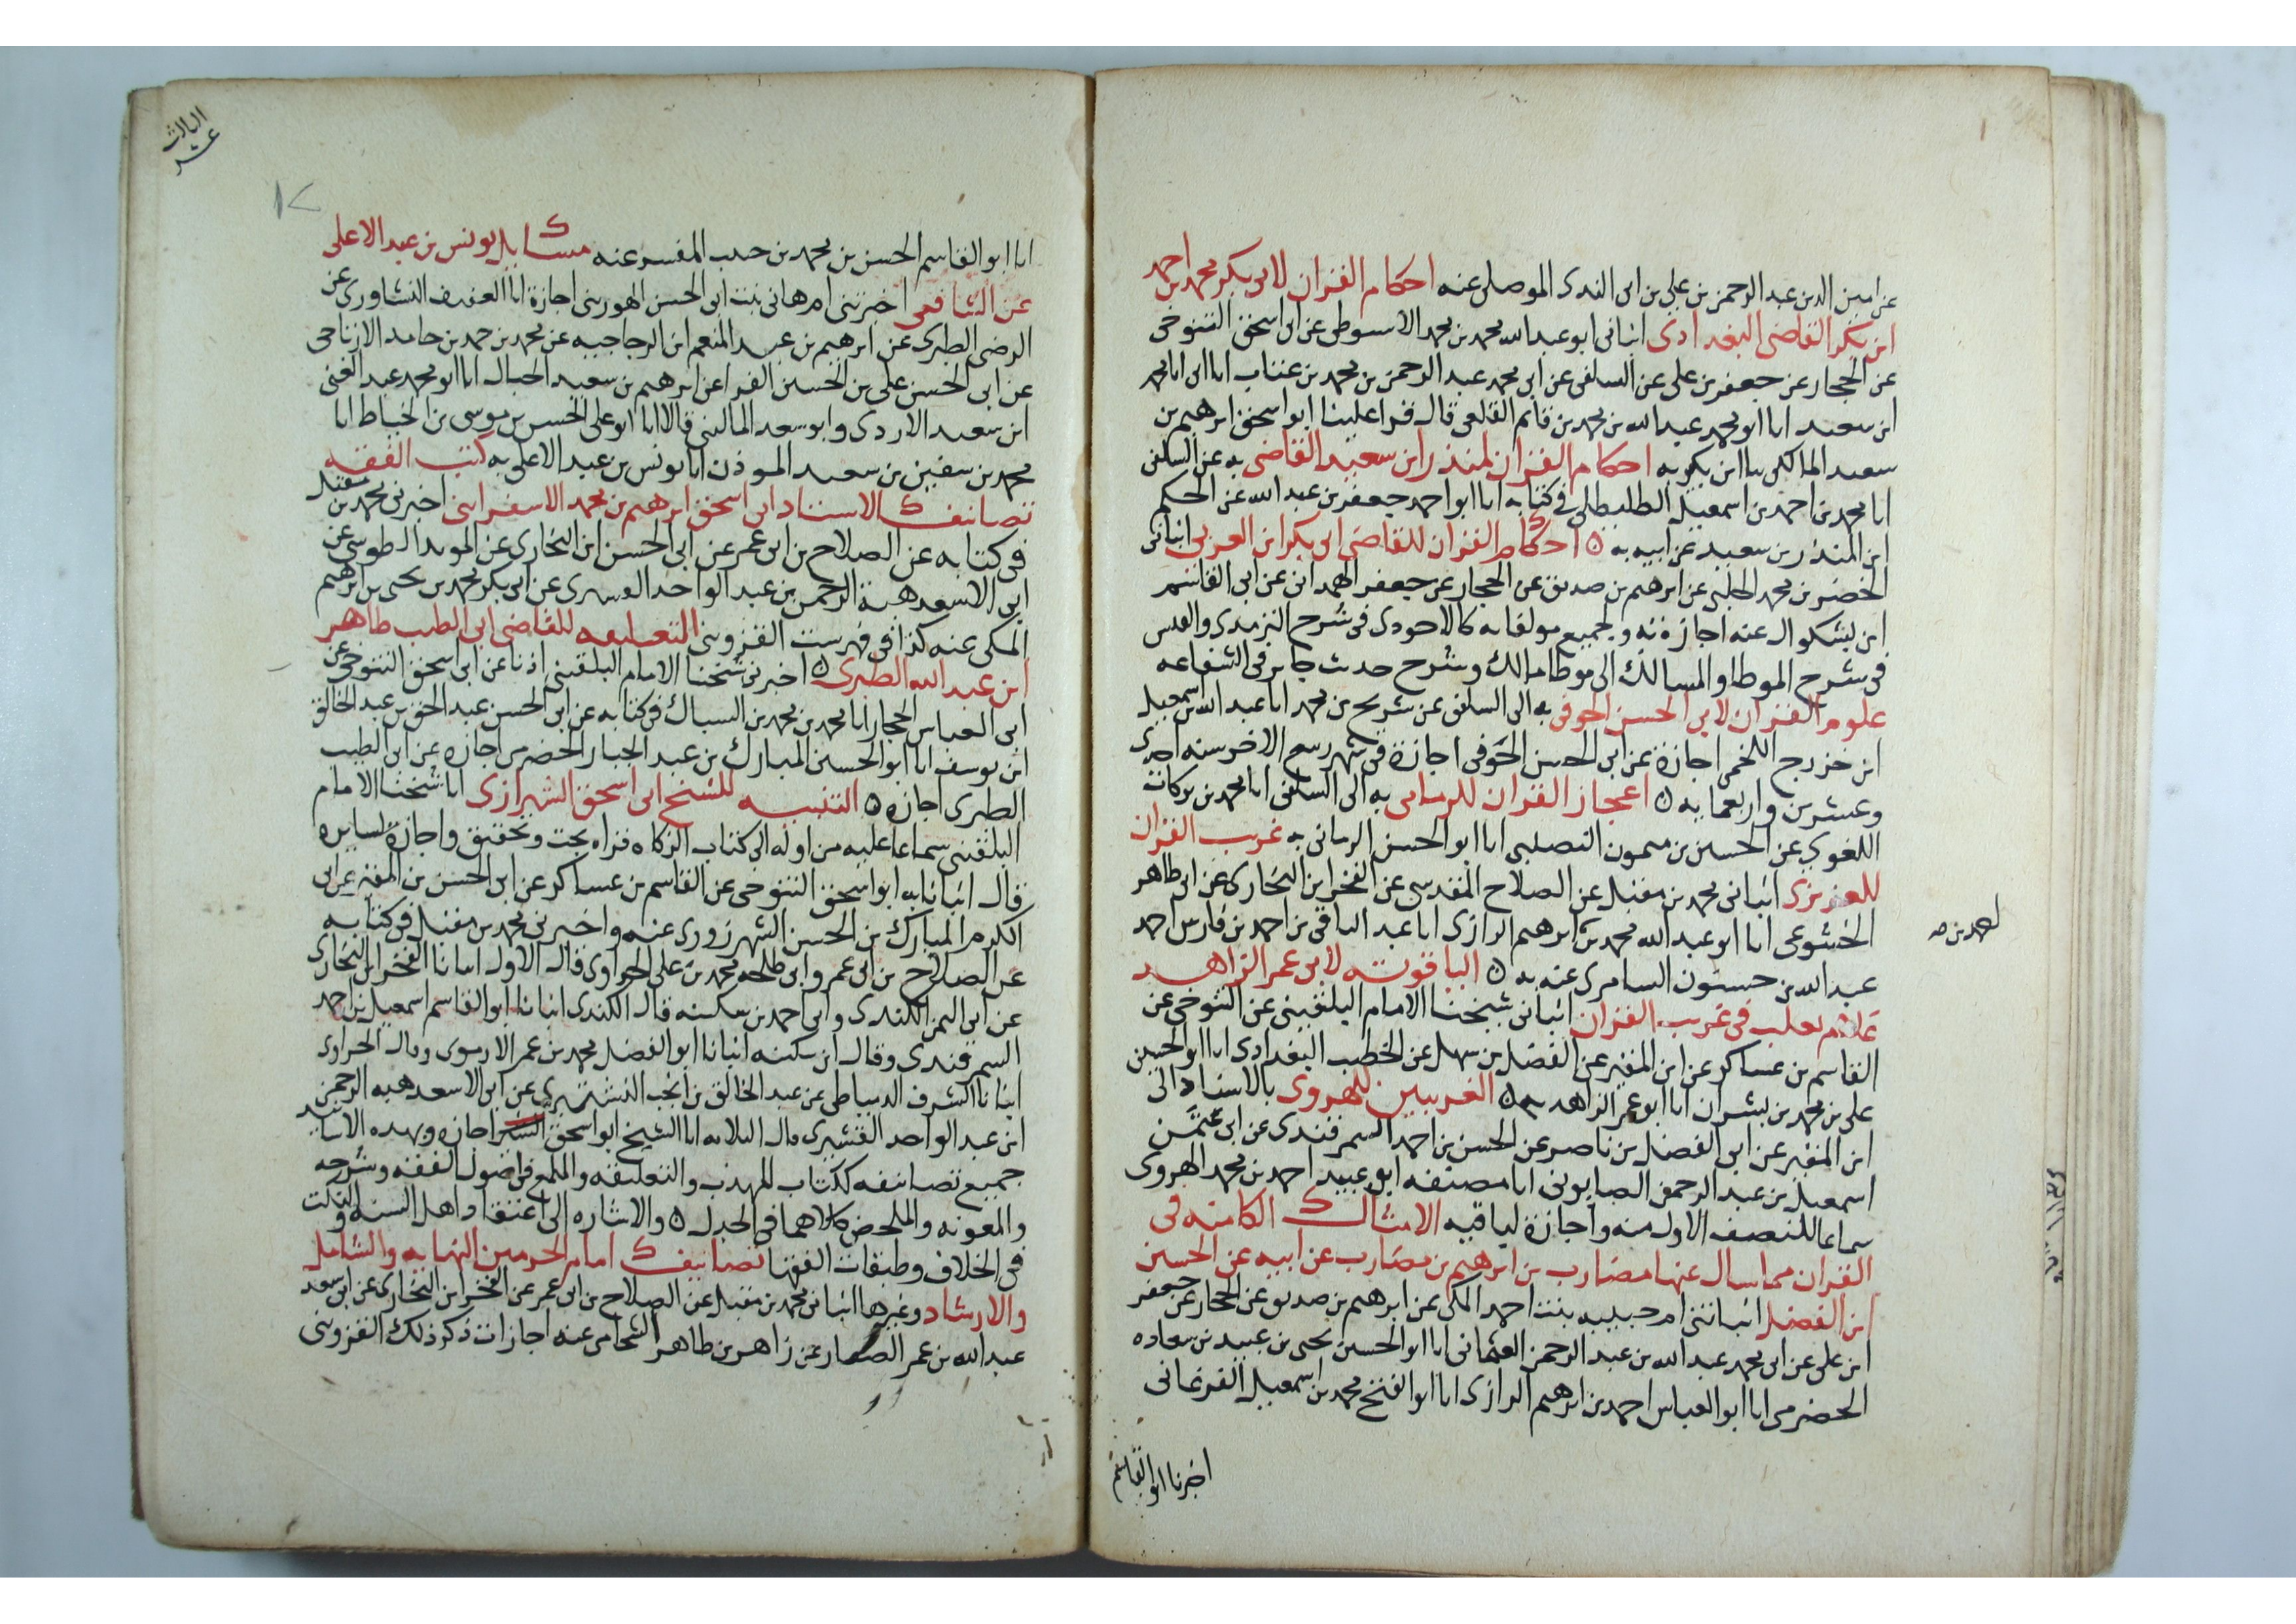 عن امين الدين عبد الرحمن بن علي بن ابى الندى الموصلى عنه احكام القران لابى بكر محمد بن احمد
ابن بكر القاضى البغدادى انبانى ابو عبد الله محمد بن محمد الاسيوطى عن ابى اسحق التنوخى
عن الحجار عن جعفر بن على عن السلفى عن ابى محمد عبد الرحمن بن محمد بن عتاب انا ابى انا محمد
ابن سعيد انا ابو محمد عبد الله بن محمد بن قاسم القلعى قال قرا علينا ابو اسحق ابرهيم بن
سعيد المالكى نا ابن بكر به احكام القران لمنذر ابن سعيد القاضى به عن السلفى
انا محمد بن احمد بن اسمعيل الطليطلى فى كتابه انا ابو احمد جعفر بن عبد الله عن الحكم
ابن المنذر بن سعيد عن ابيه به ه احكام القران للقاضى ابى بكر ابن العربى انبانى
الخضر بن محمد الحلبى عن ابرهيم بن صديق عن الحجار عن جعفر الهمدانى عن ابى القاسم
ابن بشكوال عنه اجازة به وبجميع مولفاته كالاحوذى فى شرح الترمذى والقبس
فى شرح الموطا والمسالك الى موطا مالك وشرح حديث جابر فى الشفاعه
علوم القران لابى الحسن الحوفى به الى السلفى عن شريح بن محمد انا عبد الله بن اسمعيل
ابن خزرج اللخمى اجازة عن ابى الحسن الحوفى اجازة فى شهر ربيع الاخر سنه احدى
وعشرين واربعمايه ه اعجاز القران للرمانى به الى السلفى انا محمد بن بركات
اللغوي عن الحسين بن ميمون النصلبى انا ابو الحسن الرمانى به غريب القران
للعزيزى انبانى محمد بن مقبل عن الصلاح المقدسى عن الفخر ابن البخارى عن ابى طاهر
الخشوعى انا ابو عبد الله محمد بن ابرهيم الرازى انا عبد الباقى بن احمد بن فارس احمد
عبد الله بن حسنون السامرى عنه به ه الياقوته لابى عمر الزاهد
غلام ثعلب فى غريب القران انبانى شيخنا الامام البلقينى عن التنوخى عن
القاسم بن عساكر عن ابن المقير عن الفضل بن سهل عن الخطيب البغدادى انا ابو الحسين
على بن محمد بن بشران انا ابو عمر الزاهد به ه الغريبين للهروى بالاسناد الى
ابن المقير عن ابى الفضل بن ناصر عن الحسن بن احمد السمرقندى عن ابى عثمن
اسمعيل بن عبد الرحمن الصابونى انا مصنفه ابو عبيد احمد بن محمد الهروى
سماعا للنصف الاول منه واجازة لباقيه الامثال الكامنه فى
القران مما سال عنها مضارب بن ابرهيم بن مضارب عن ابيه عن الحسين
ابن الفضل انباتنى ام حبيبه بنت احمد المكى عن ابرهيم بن صديق عن الحجار عن جعفر
ابن على عن ابى محمد عبد الله بن عبد الرحمن العثمانى انا ابو الحسين يحيى بن عبيد بن سعاده
الحضرمى انا ابو العباس احمد بن ابرهيم الرازى انا ابو الفتح محمد بن اسمعيل الفرغانى
اخبرنا ابو القاسم
الثالث
عشر
١٢
انا ابو القاسم الحسن بن محمد بن حبيب المفسر عنه مسايل يونس بن عبد الاعلى
عن الشافعى اخبرتنى ام هانى بنت ابى الحسن الهورينى اجازة انا العفيف النشاورى عن
الرضى الطبرى عن ابرهيم بن عبد المنعم ابن الزجاجيه عن محمد بن حمد بن حامد الارتاحى
عن ابى الحسن على بن الحسين الفرا عن ابرهيم بن سعيد الحبال انا ابو محمد عبد الغنى
ابن سعيد الازدى وابو سعد المالينى قالا انا ابو على الحسن بن موسى بن الخياط انا
محمد بن سفين بن سعيد الموذن انا يونس بن عبد الاعلى به كتب الفقه
تصانيف الاستاذ ابى اسحق ابرهيم بن محمد الاسفراينى اخبرنى محمد بن مقبل
فى كتابه عن الصلاح بن ابى عمر عن ابى الحسن ابن البخارى عن المويد الطوسى عن
ابى الاسعد هبة الرحمن بن عبد الواحد القشيرى عن ابى بكر محمد بن يحيى بن ابرهيم
المكى عنه كذا فى فهرست القزوينى التعليقه للقاضى ابى الطيب طاهر
ابن عبد الله الطبرى ه اخبرنى شيخنا الامام البلقينى اذنا عن ابى اسحق التنوخى عن
ابى العباس الحجار انا محمد بن محمد بن السباك فى كتابه عن ابى الحسن عبد الحق بن عبد الخالق
ابن يوسف انا ابو الحسين المبارك بن عبد الجبار الحضرمى اجازة عن ابى الطيب
الطبرى اجازه ه التنبيه للشيخ ابى اسحق الشيرازى انا شيخنا الامام
البلقينى سماعا عليه من اوله الى كتاب الزكاه قراه بحث وتحقيق واجازة لسايره
قال انبانا به ابو اسحق التنوخى عن القاسم بن عساكر عن ابى الحسن بن المقير عن ابى
الكرم المبارك بن الحسن الشهرزورى عنه واخبرنى محمد بن مقبل فى كتابه
عن الصلاح بن ابى عمر وابى طلحه محمد بن على الحراوى قال الاول انبانا الفخر ابن البخارى
عن ابى اليمن الكندى وابى احمد بن سكينه قال الكندى انبانا ابو القاسم اسمعيل بن احمد
السمرقندى وقال ابن سكينه انبانا ابو الفضل محمد بن عمر الارموى وقال الحراوى
انبانا الشرف الدمياطى عن عبد الخالق بن انجب النشتبرى عن ابى الاسعد هبه الرحمن
ابن عبد الواحد القشيرى قال الثلاثه انا الشيخ ابو اسحق اجازه وبهذه الاسانيد
جميع تصانيفه ككتاب المهذب والتعليقه واللمع فى اصول الفقه وشرحه
والمعونه والملخص كلاهما فى الجدل ه والاشاره الى اعتقاد اهل السنه والنكت
فى الخلاف وطبقات الفقها تصانيف امام الحرمين النهايه والشامل
والارشاد وغيرها انبانى محمد بن مقبل عن الصلاح بن ابى عمر عن الفخر ابن البخارى عن ابى سعد
عبد الله بن عمر الصفار عن زاهر بن طاهر الشحامى عنه اجازات ذكر ذلك القزوينى